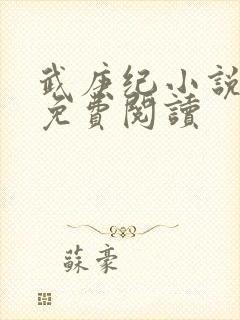 武庚纪小說
免費閱讀
蘇豪